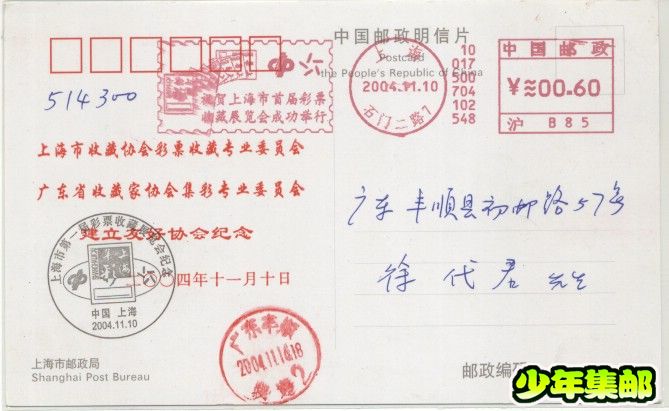 中国邮政明信片
Postcard
the People's Republic of China
祝贺上海市首届彩票
收藏展览会成功举行
上海
2004.11.10
石门二路1
10
017
500
704
102
548
中国邮政
¥≈00.60
沪 B85
514300
上海市收藏协会彩票收藏专业委员会
广东省收藏家协会集彩专业委员会
建立友好协会纪念
二〇〇四年十一月十日
上海市第一届彩票收藏展览会纪念
中国 上海
2004.11.10
广东丰顺
2004.11.16.18
广东丰顺县初邮路57号
徐代君 先生
上海市邮政局
Shanghai Post Bureau
邮政编码
少年集邮